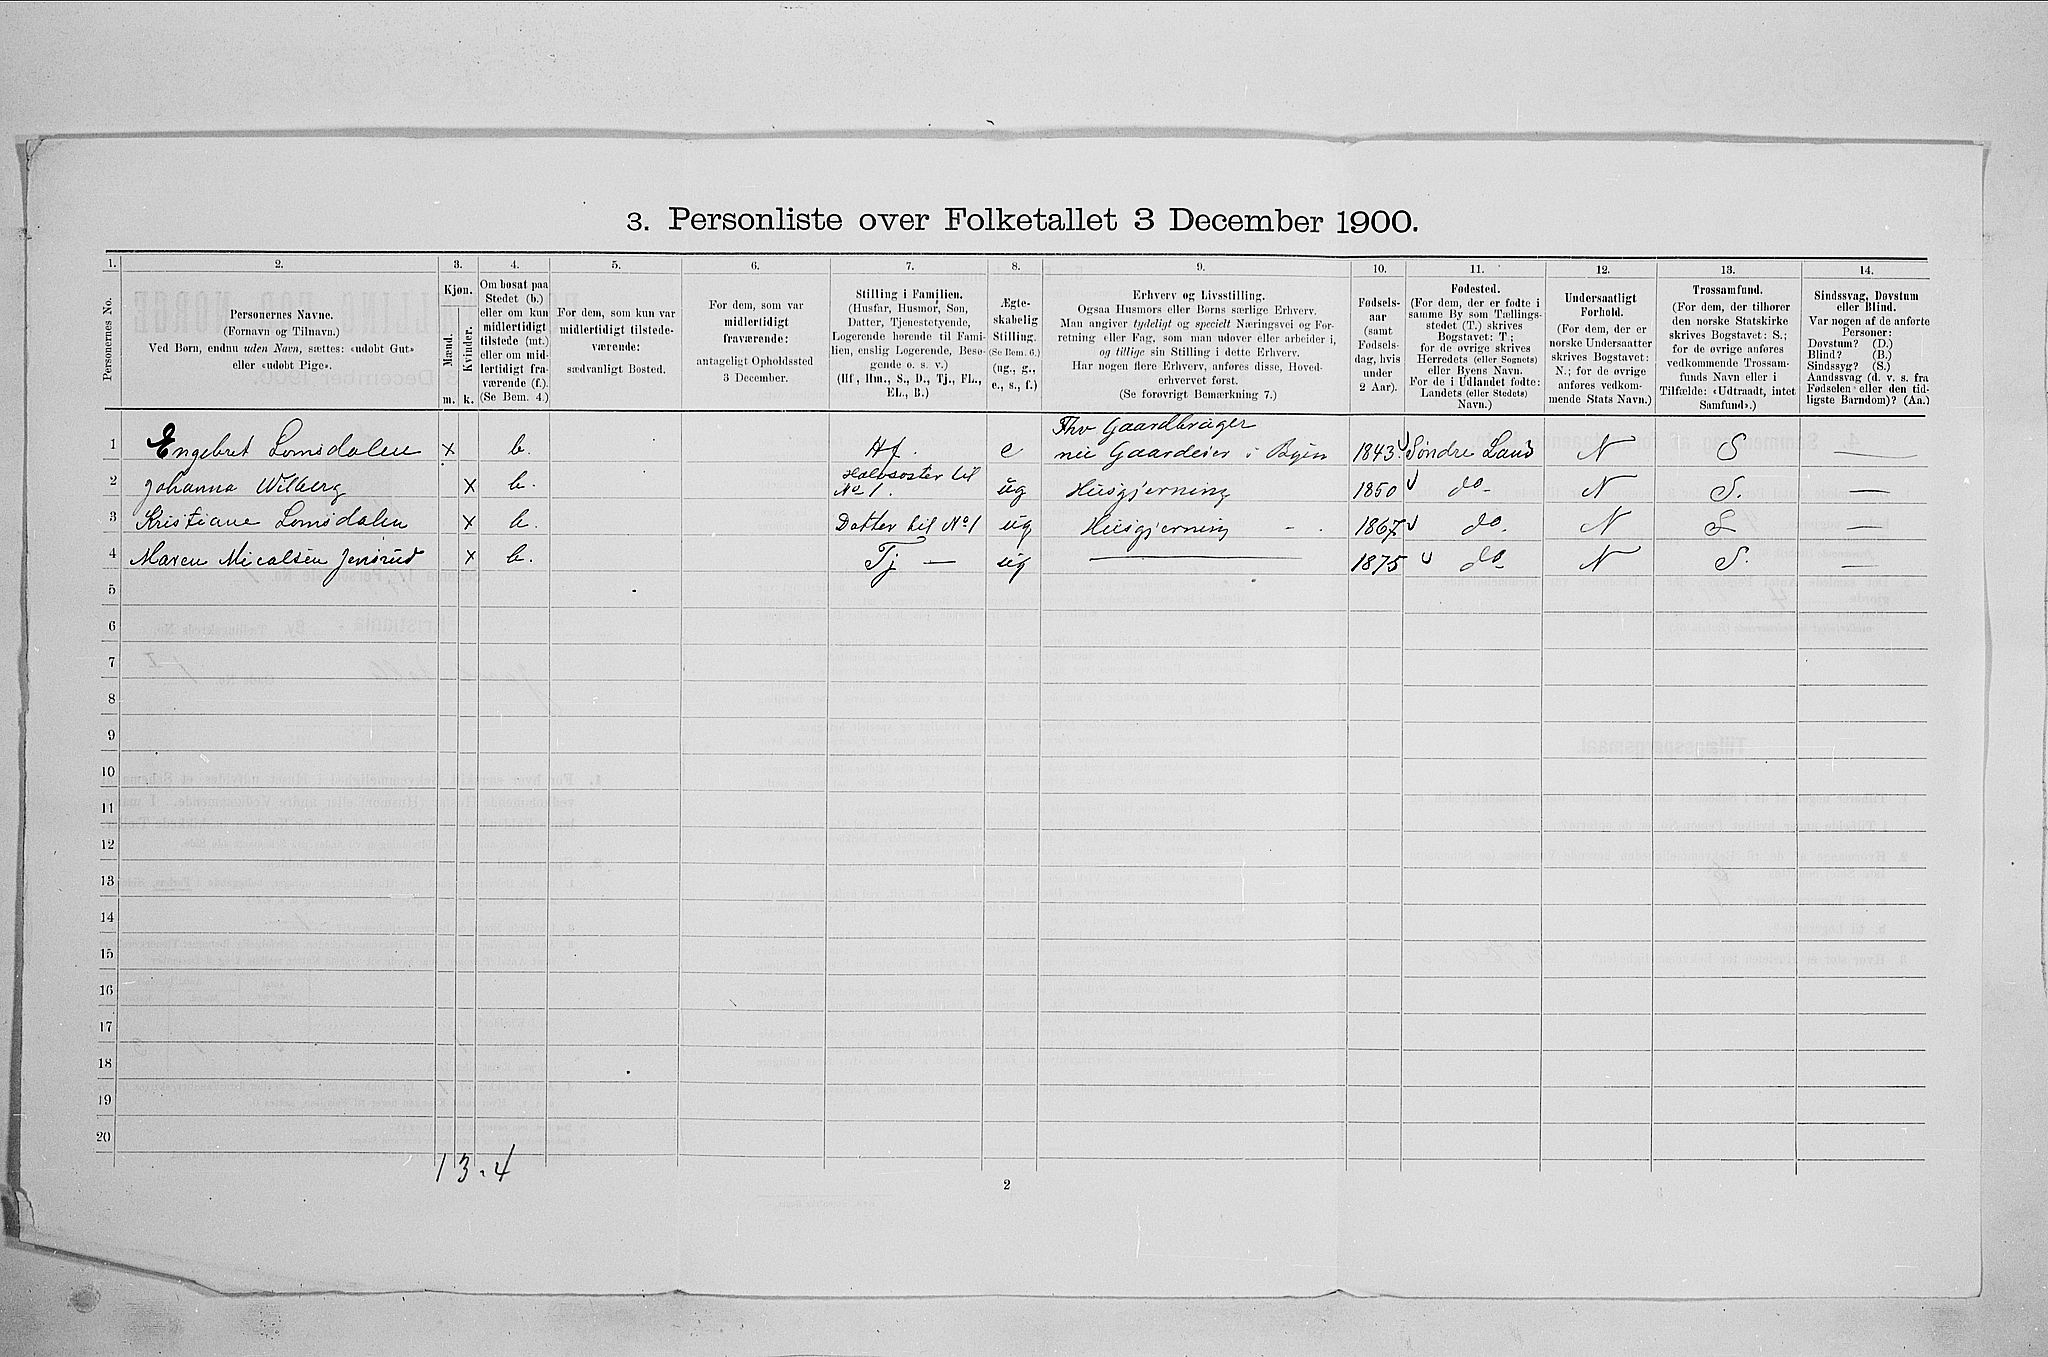 3. Personliste over Folketallet 3 December 1900.
1. 2. 3. 4. 5. 6. 7. 8. 9. 10. 11. 12. 13. 14.
Personernes No.
Personernes Navne.
(Fornavn og Tilnavn.)
Ved Børn, endnu uden Navn, sættes: «udøbt Gut»
eller «udøbt Pige».
Kjøn.
Mænd.
Kvinder.
m. k.
Om bosat paa
Stedet (b.)
eller om kun
midlertidigt
tilstede (mt.)
eller om mid-
lertidigt fra-
værende (f.).
(Se Bem. 4.)
For dem, som kun var
midlertidigt tilstede-
værende:
sædvanligt Bosted.
For dem, som var
midlertidigt
fraværende:
antageligt Opholdssted
3 December.
Stilling i Familien.
(Husfar, Husmor, Søn,
Datter, Tjenestetyende,
Logerende hørende til Fami-
lien, enslig Logerende, Besø-
gende o. s. v.)
(Hf., Hm., S., D., Tj., FL.,
EL., B.)
Ægte-
skabelig
Stilling.
(Se Bem. 6.)
(ug., g.,
e., s., f.)
Erhverv og Livsstilling.
Ogsaa Husmors eller Børns særlige Erhverv.
Man angiver tydeligt og specielt Næringsvei og For-
retning eller Fag, som man udøver eller arbeider i,
og tillige sin Stilling i dette Erhverv.
Har nogen flere Erhverv, anføres disse, Hoved-
erhvervet først.
(Se forøvrigt Bemærkning 7.)
Fødsels-
aar
(samt
Fødsels-
dag, hvis
under
2 Aar).
Fødested.
(For dem, der er fødte i
samme By som Tællings-
stedet (T.) skrives
Bogstavet: T;
for de øvrige skrives
Herredets (eller Sognets)
eller Byens Navn.
For de i Udlandet fødte:
Landets (eller Stedets)
Navn.)
Undersaatligt
Forhold.
(For dem, der er
norske Undersaatter
skrives Bogstavet:
N.; for de øvrige
anføres vedkom-
mende Stats Navn.)
Trossamfund.
(For dem, der tilhører
den norske Statskirke
skrives Bogstavet: S.;
for de øvrige anføres
vedkommende Trossam-
funds Navn eller i
Tilfælde: «Udtraadt, intet
Samfund».)
Sindssvag, Døvstum
eller Blind.
Var nogen af de anførte
Personer:
Døvstum? (D.)
Blind? (B.)
Sindssyg? (S.)
Aandssvag (d. v. s. fra
Fødselen eller den tid-
ligste Barndom)? (Aa.)
Fhv Gaardbruger
1 Engebret Lomsdalen × b. Hf. e nu Gaardeier i Byen 1843 Søndre Land N S —
Halvsøster til
2 Johanna Wilberg × b. No 1. ug Husgjerning 1850 do- N S. —
3 Kristiane Lomsdalen × b. Datter til No 1 ug Husgjerning - 1867 do. N S —
4 Maren Micalsen Jensrud × b. Tj — ug — 1875 do- N S. —
5
6
7
8
9
10
11
12
13
14
15
16
17
18
19
20
13.4
2